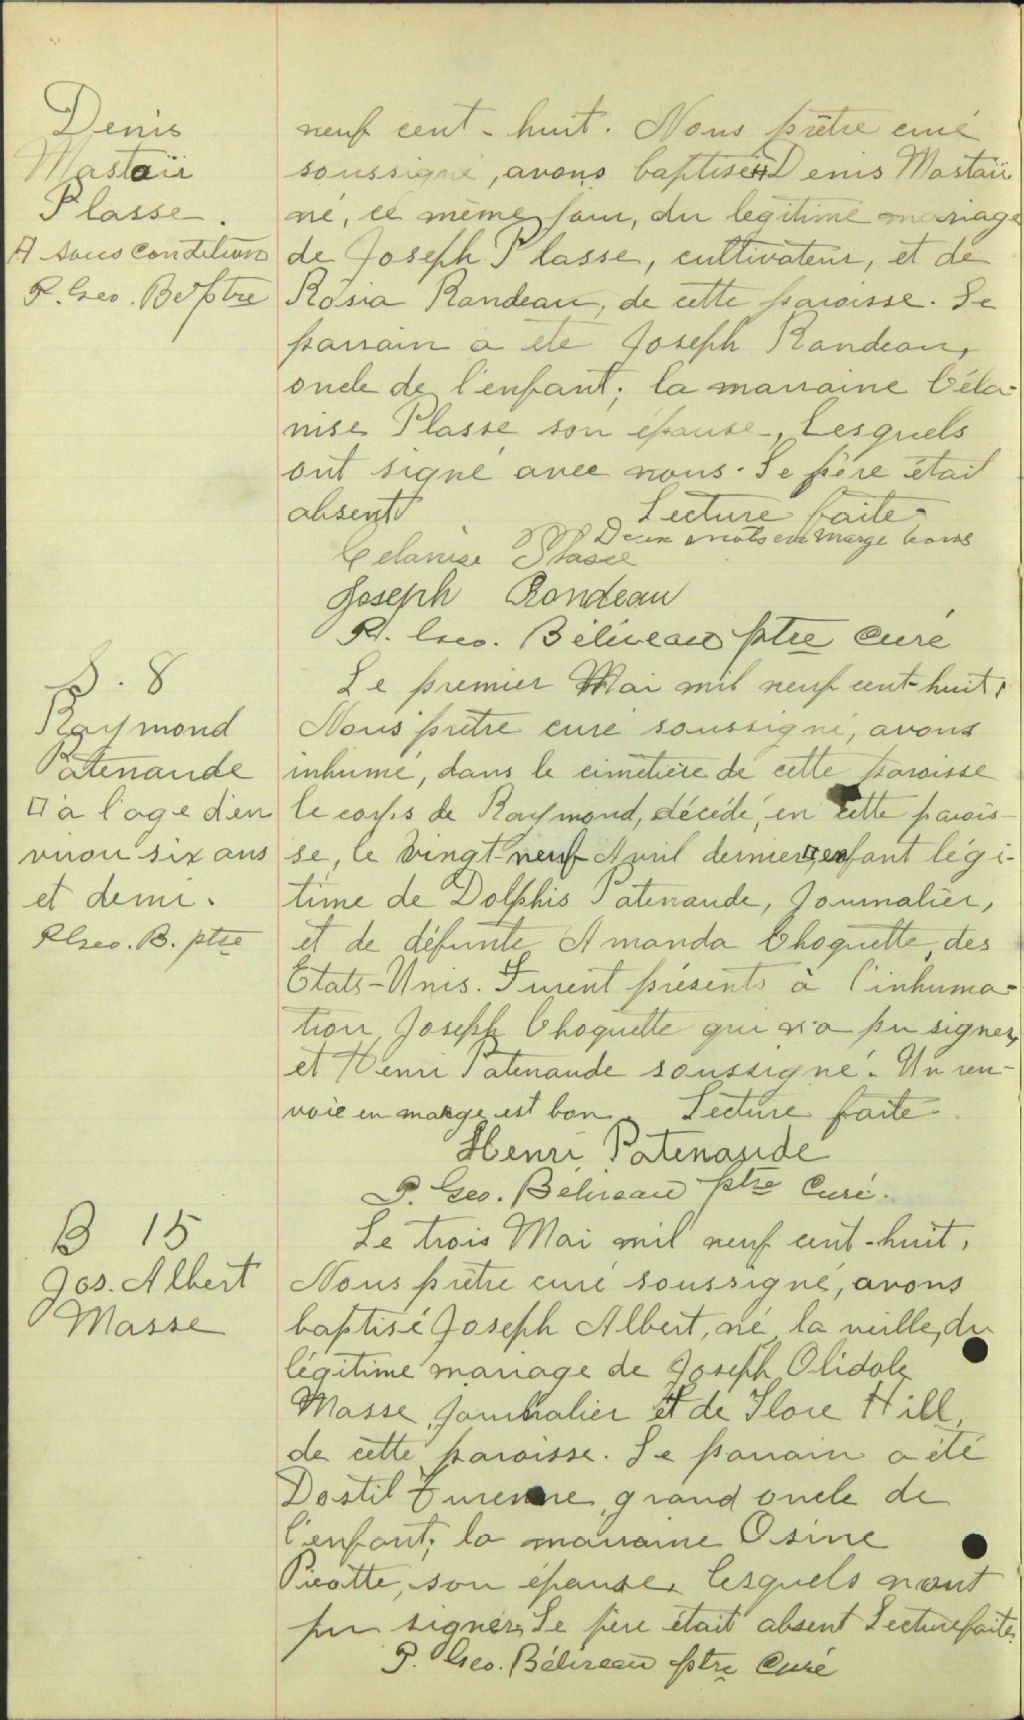 Denis
Mastaï
Plasse.
# sous condition
P. Geo. B. ptre
neuf cent-huit. Nous prêtre curé
soussigné, avons baptisé # Denis Mastaï
né, ce même jour, du légitime mariage
de Joseph Plasse, cultivateur, et de
Rosia Rondeau, de cette paroisse. Le
parrain a été Joseph Rondeau,
oncle de l'enfant; la marraine Céla-
nise Plasse son épouse, Lesquels
ont signé avec nous. Le père était
absent. Lecture faite.
Deux mots en marge bons
Celanise Plasse
Joseph Rondeau
P. Geo. Béliveau ptre Curé
S. 8
Raymond
Patenaude
□ à l'age d'en
viron six ans
et demi.
P. Geo. B. ptre
Le premier Mai mil neuf cent-huit,
Nous prêtre curé soussigné, avons
inhumé, dans le cimetière de cette paroisse
le corps de Raymond, décédé, en cette parois-
se, le vingt-neuf Avril dernier □, enfant légi-
time de Dolphis Patenaude, Journalier,
et de défunte Amanda Choquette, des
Etats-Unis. Furent présents à l'inhuma-
tion, Joseph Choquette qui n'a pu signer,
et Henri Patenaude soussigné. Un ren-
voie en marge est bon. Lecture faite
Henri Patenaude
P. Geo. Béliveau ptre Curé.
B 15
Jos. Albert
Masse
Le trois Mai mil neuf cent-huit,
Nous prêtre curé soussigné, avons
baptisé Joseph Albert, né, la veille, du
légitime mariage de Joseph Olidole
Masse, journalier et de Flore Hill,
de cette paroisse. Le parrain a été
Dostil Turenne, grand oncle de
l'enfant; la marraine Osine
Picotte, son épouse, lesquels n'ont
pu signer, Le père était absent Lecture faite.
P. Geo. Béliveau ptre Curé